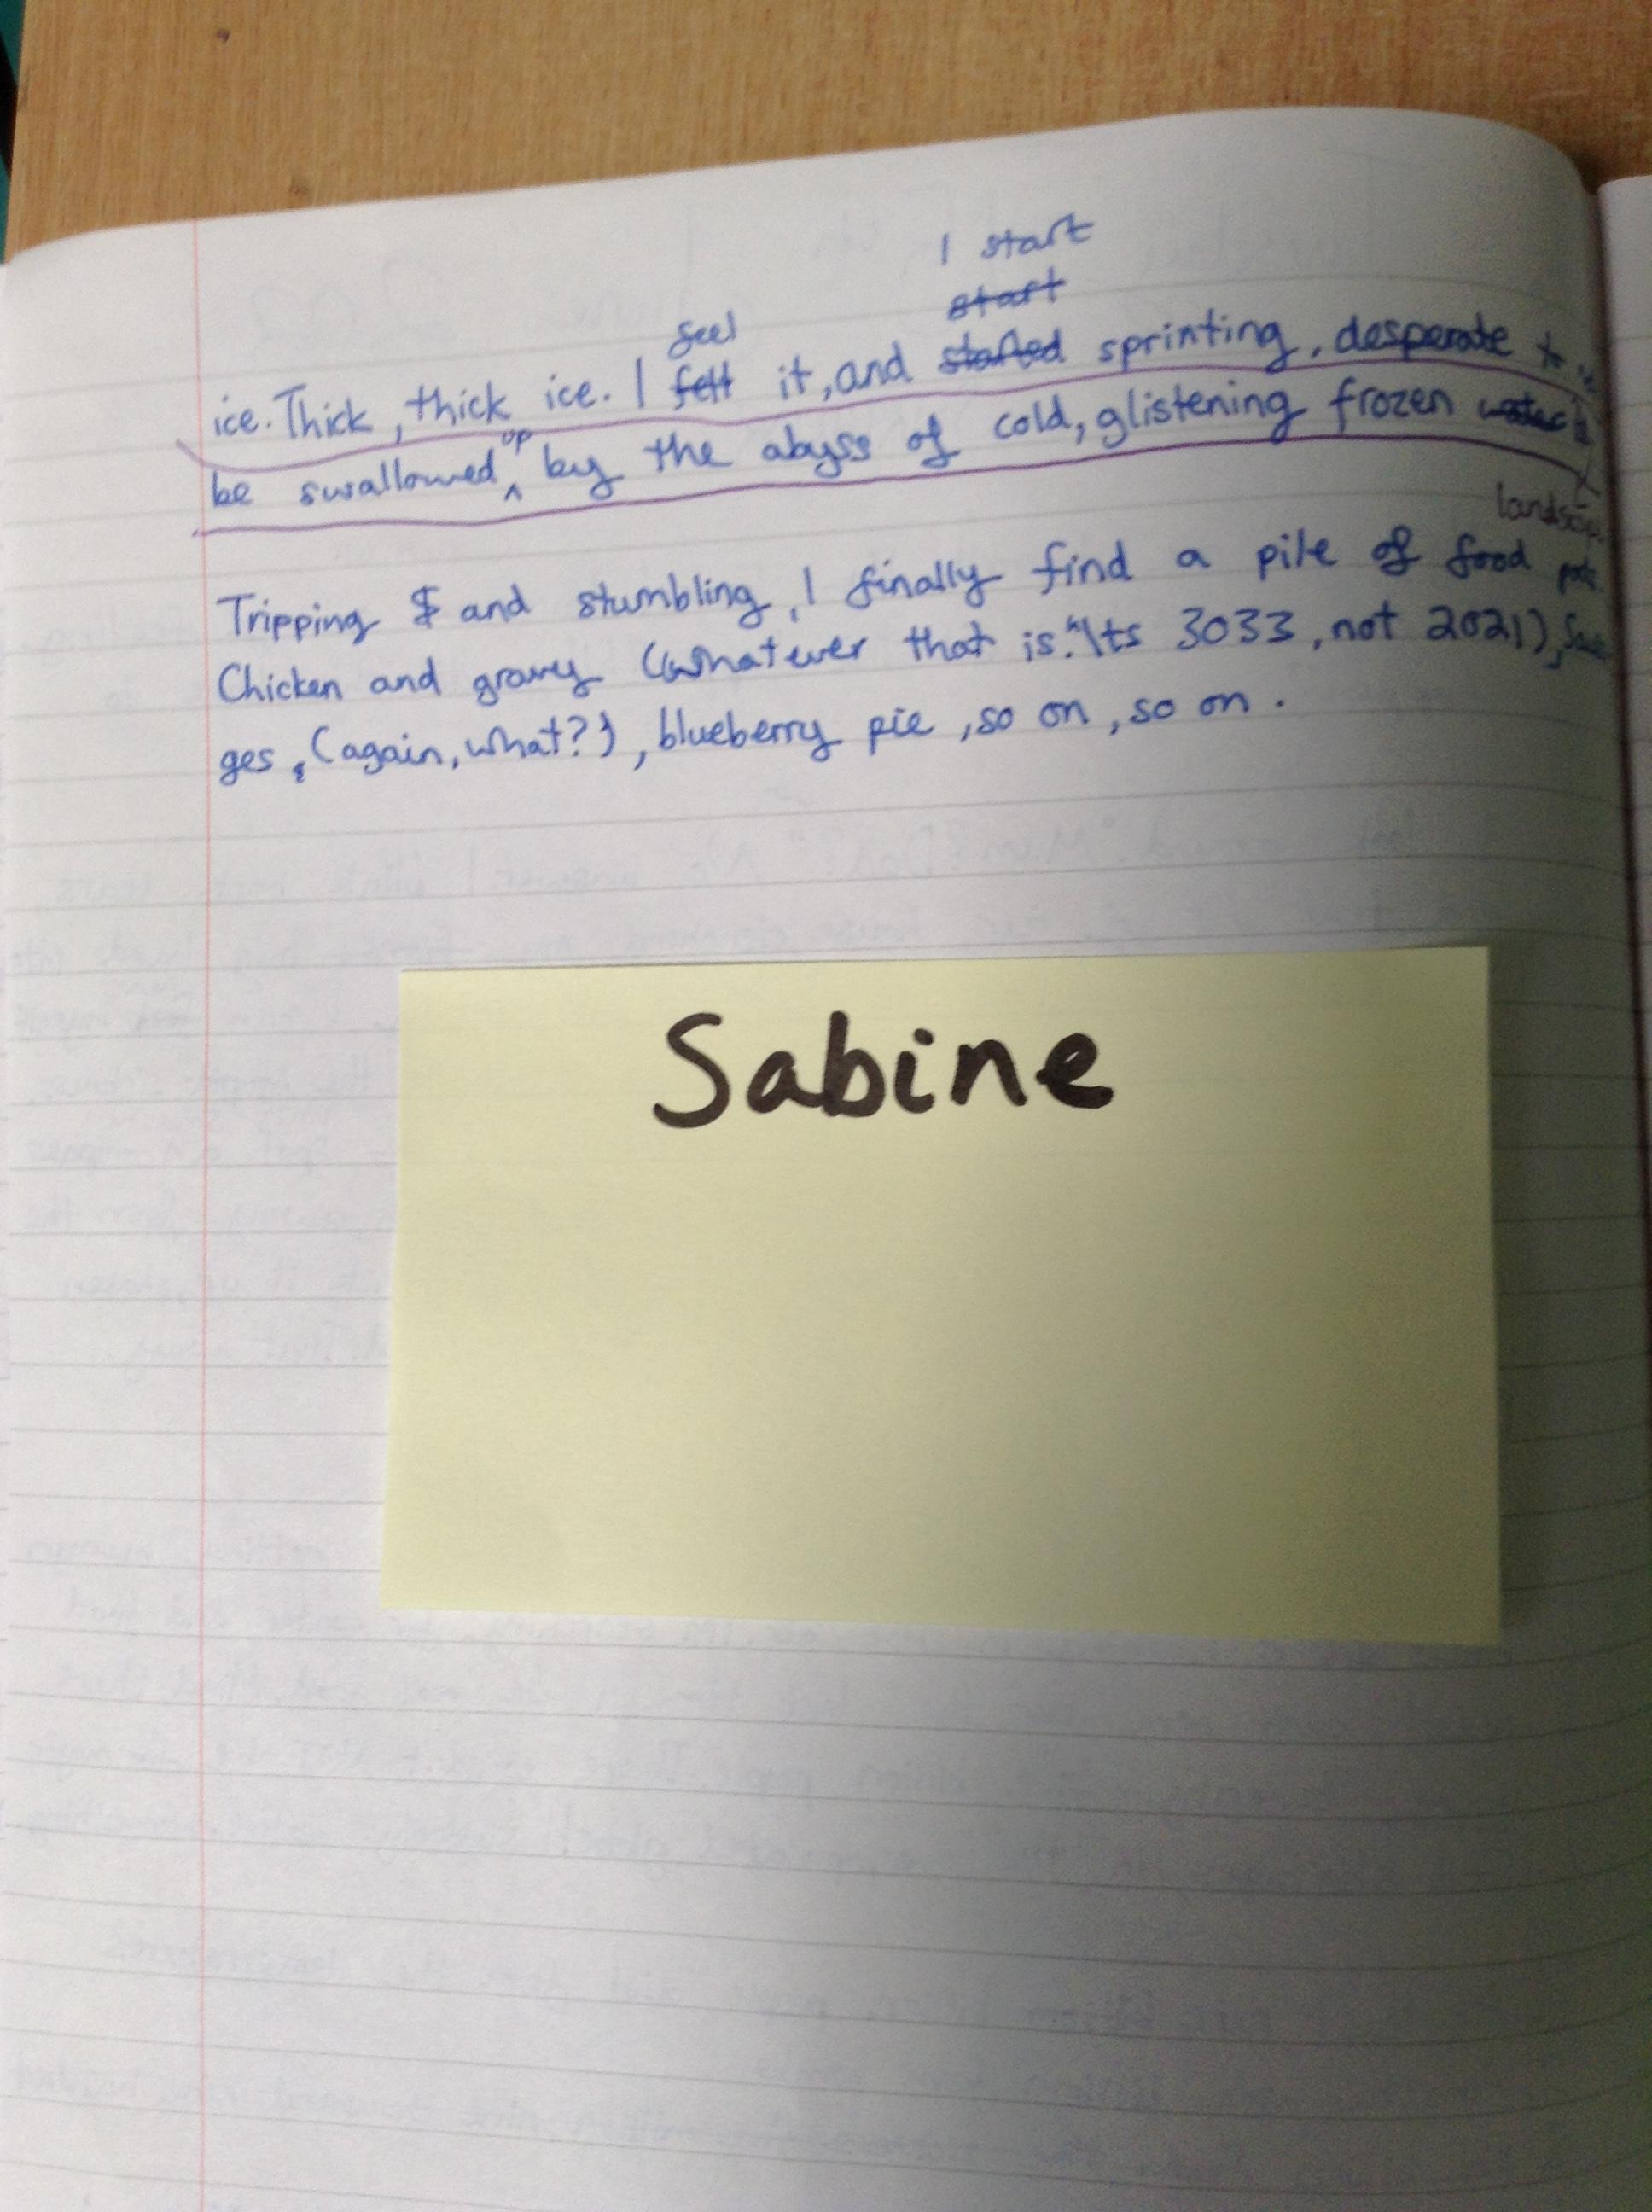 I start
start
feel
ice. Thick, thick ice. I felt it, and started sprinting, desperate to
up
be swallowed ^ by the abyss of cold, glistening frozen water
Tripping & and stumbling, I finally find a pile of food
Chicken and gravy (whatever that is. Its 3033, not 2021),
ges, (again, what?), blueberry pie, so on, so on.
Sabine